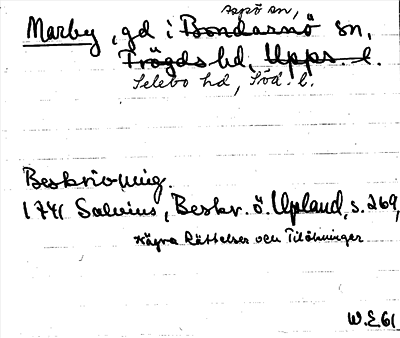 Aspö sn,
Marby, gd i Bondarnö sn,
Trögds hd. Upps. l.
Selebo hd, Söd. l.
Beskrivning.
1741 Salvius, Beskr. ö. Upland, s. 269,
Några Rättelser och Tilökningar
W.E61